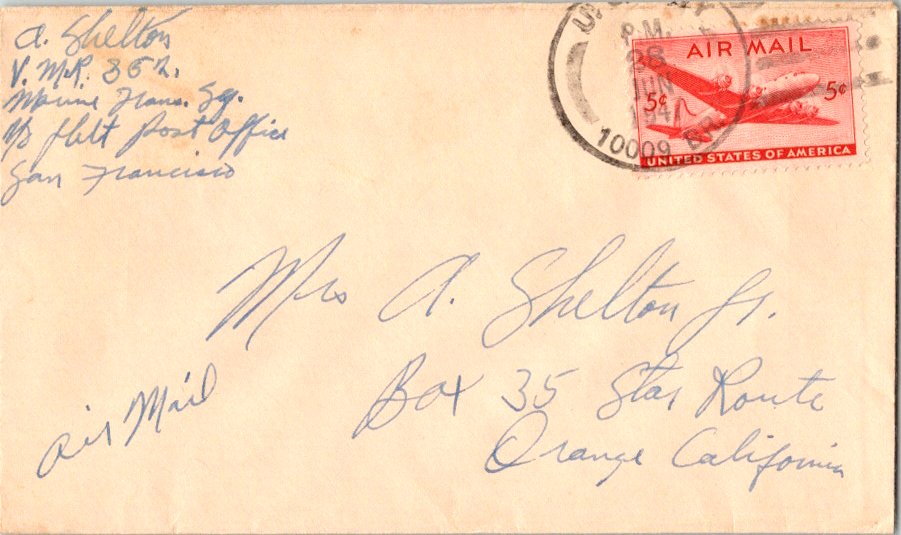 A. Shelton
V.M.R. 352.
Marine Trans. Sq.
℅ Fleet Post Office
San Francisco
P.M.
28
JUN
194
10009 BR.
AIR MAIL
5¢ 5¢
UNITED STATES OF AMERICA
Mrs A. Shelton Jr.
Box 35 Star Route
Orange California
Air Mail